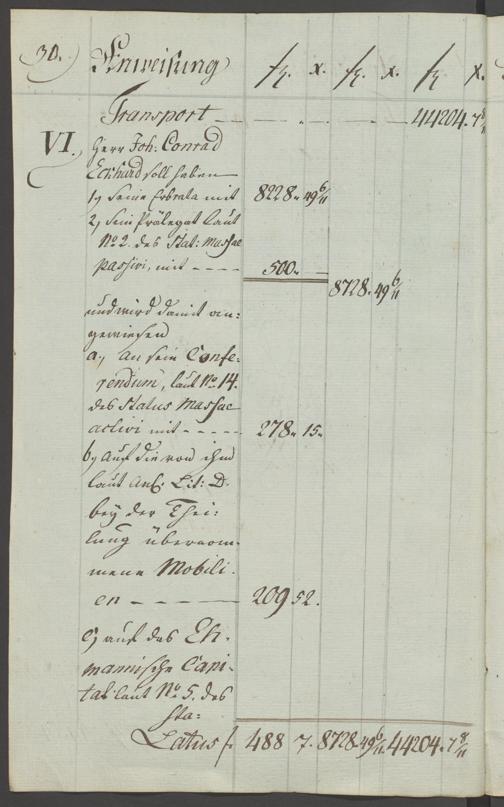 30. Anweisung fl. x. fl. x. fl. x.
Transport — — — — 44204. 7 8/11
VI. Herr Joh: Conrad
Eckhard soll haben
1, seine Erbrata mit 8228. 49 6/11
2, sein Prälegat laut
No 2. des Stat: massae
passivi, mit - - - - 500. —
8728. 49 6/11
und wird damit an=
gewiesen
a., an sein Confe=
rendum, laut No. 14.
des Status massae
activi mit - - - - - 278. 15.
b, auf die von ihm
laut Anl. Lit: D.
bey der Thei=
lung übernom=
mene Mobili=
en — — — — 209 52.
c, auf das Eh=
mannische Capi=
tal laut No. 5. des
Sta=
Latus f. 488 7. 8728. 49 6/11. 44204. 7 8/11